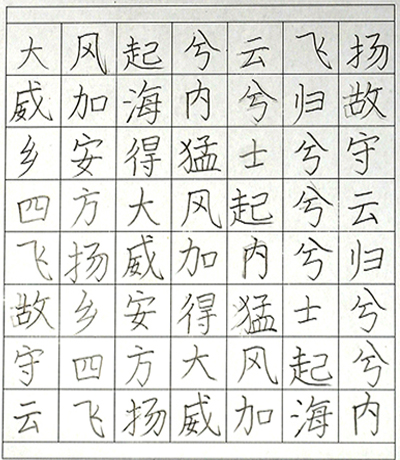 大风起兮云飞扬
威加海内兮归故
乡安得猛士兮守
四方大风起兮云
飞扬威加内兮归
故乡安得猛士兮
守四方大风起兮
云飞扬威加海内